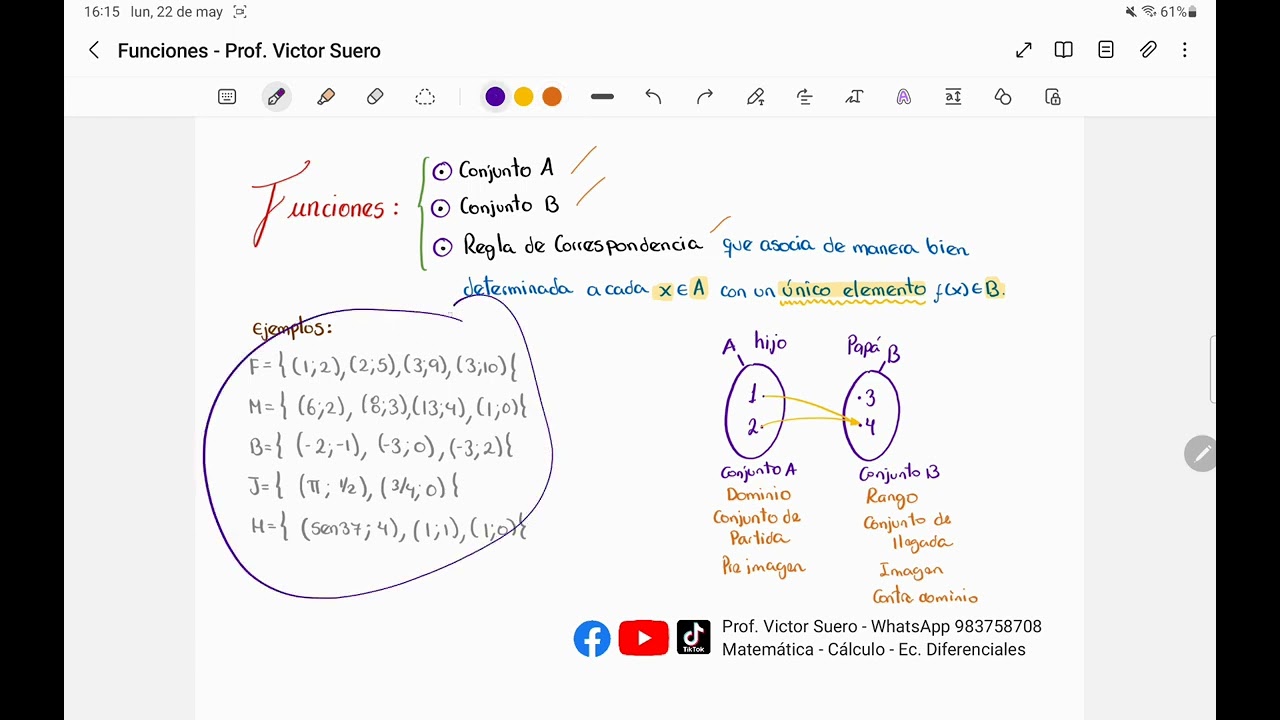 16:15 lun, 22 de may 61%
Funciones - Prof. Victor Suero
Funciones:
Conjunto A
Conjunto B
Regla de Correspondencia que asocia de manera bien
determinada a cada x ∈ A con un único elemento f(x) ∈ B.
Ejemplos:
F={ (1;2), (2;5), (3;9), (3;10){
M={ (6;2), (8;3), (13;4), (1;0){
B={ (-2;-1), (-3;0), (-3;2){
J={ (π; 1/2), (3/4; 0) {
H={ (sen37; 4), (1;1), (1;0){
A hijo Papá B
1 .3
2 .4
Conjunto A Conjunto B
Dominio Rango
Conjunto de Partida Conjunto de llegada
Pre imagen Imagen
Contra dominio
TikTok
Prof. Victor Suero - WhatsApp 983758708
Matemática - Cálculo - Ec. Diferenciales